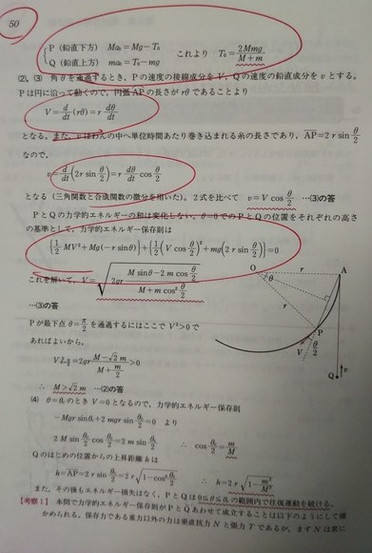 50
P（鉛直下方） Ma₀＝Mg－T₀
Q（鉛直上方） ma₀＝T₀－mg これより T₀＝2Mmg/(M＋m)
(2), (3) 角θを通過するとき，Pの速度の接線成分をV，Qの速度の鉛直成分をvとする。
Pは円に沿って動くので，円弧APの長さがrθであることより
V＝d/dt(rθ)＝r dθ/dt
となる。また，vはわんの中へ単位時間あたり巻き込まれる糸の長さであり，AP＝2r sin θ/2
なので，
v＝d/dt(2r sin θ/2)＝r dθ/dt cos θ/2
となる（三角関数と合成関数の微分を用いた）。2式を比べて v＝V cos θ/2 …(3)の答
PとQの力学的エネルギーの和は変化しない。θ＝0でのPとQの位置をそれぞれの高さ
の基準として，力学的エネルギー保存則は
{1/2 MV²＋Mg(－r sinθ)}＋{1/2 m(V cos θ/2)²＋mg(2r sin θ/2)}＝0
これを解いて，V＝√(2gr (M sinθ－2m cos θ/2)/(M＋m cos² θ/2))
…(3)の答
Pが最下点 θ＝π/2 を通過するにはここで V²＞0 で
あればよいから，
V²＝2gr (M－√2 m)/(M＋m/2)＞0
∴ M＞√2 m …(2)の答
(4) θ＝θ₀のとき V＝0となるので，力学的エネルギー保存則
－Mgr sinθ₀＋2mgr sin θ₀/2＝0 より
2M sin θ₀/2 cos θ₀/2＝2m sin θ₀/2 ∴ cos θ₀/2＝m/M
Qのはじめの位置からの上昇距離hは
h＝AP＝2r sin θ₀/2＝2r√(1－cos² θ₀/2) ∴ h＝2r√(1－m²/M²)
また，その後もエネルギー損失はなく，PとQは0≦θ≦θ₀の範囲内で往復運動を続ける。
【考察1】 本問で力学的エネルギー保存則がPとQあわせて成立することは以下のようにして確
かめられる。保存力である重力以外の力は垂直抗力Nと張力Tであるが，まずNは常に
O
r
A
θ
r
P
V
θ/2
v
Q